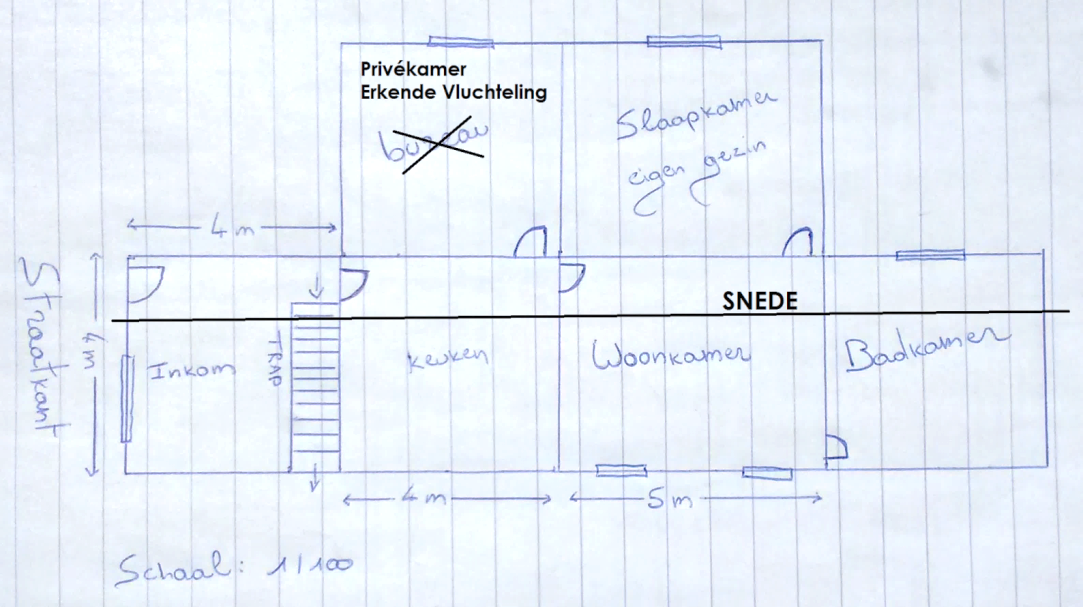 Privékamer
Erkende Vluchteling
bureau
Slaapkamer
eigen gezin
4 m
Straatkant
4 m
Inkom
TRAP
keuken
SNEDE
Woonkamer
Badkamer
4 m
5 m
Schaal: 1/100